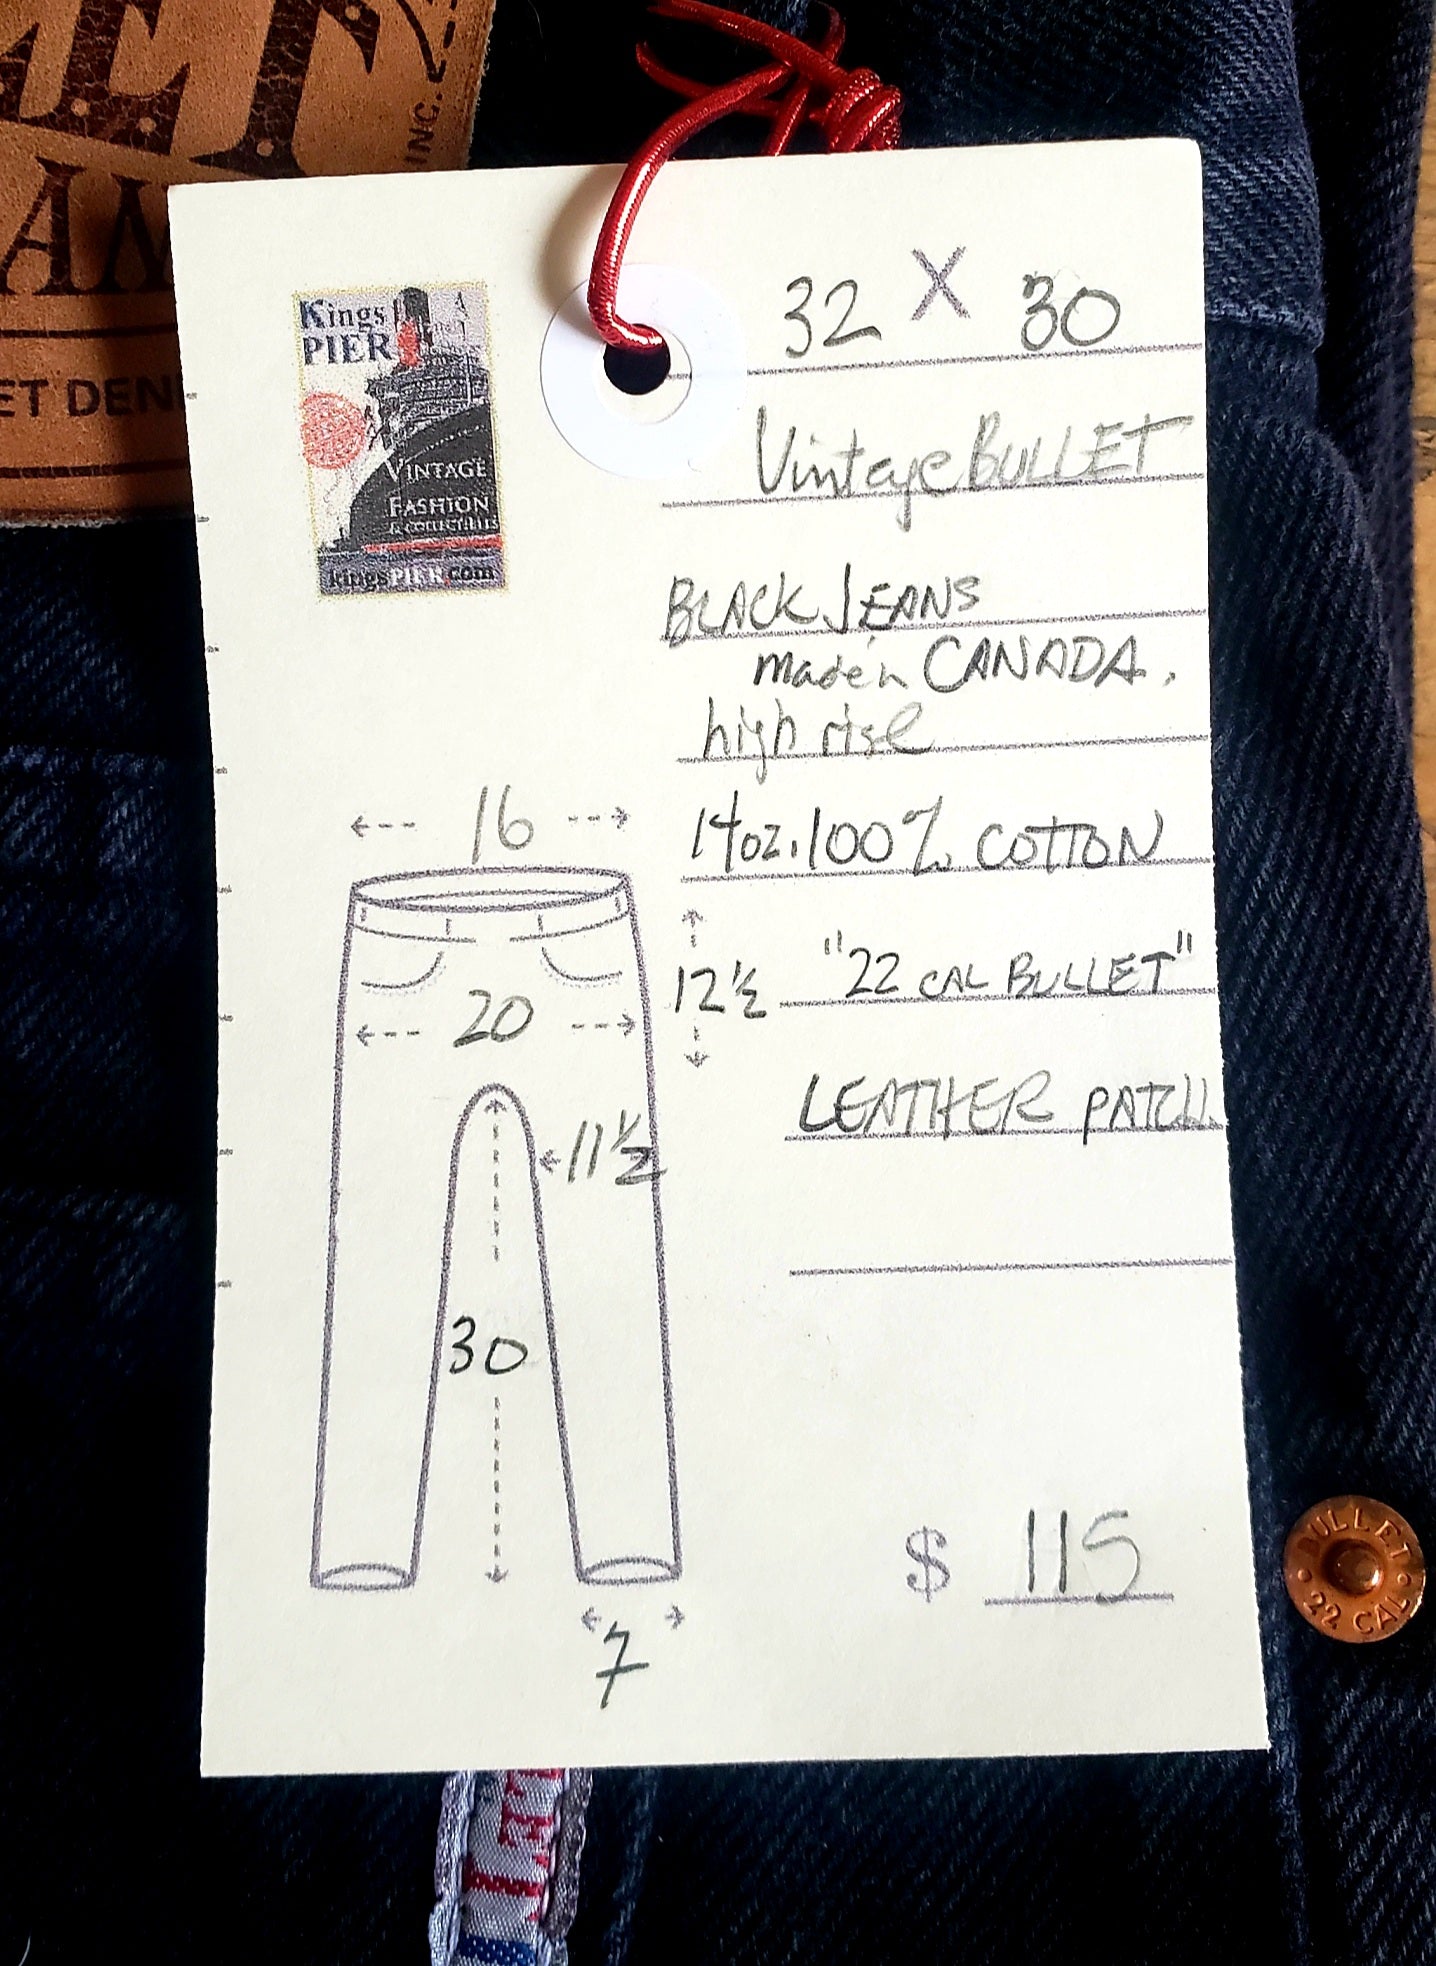 ET
INC.
AM
ET DEN
Kings
PIER
VINTAGE
FASHION
& COLLECTIBLES
kingsPIER.com
32 X 30
Vintage BULLET
BLACK JEANS
made in CANADA.
high rise
14oz. 100% COTTON
"22 CAL BULLET"
LEATHER PATCH.
16
20
12 ½
11 ½
30
7
$ 115
BULLET
22 CAL